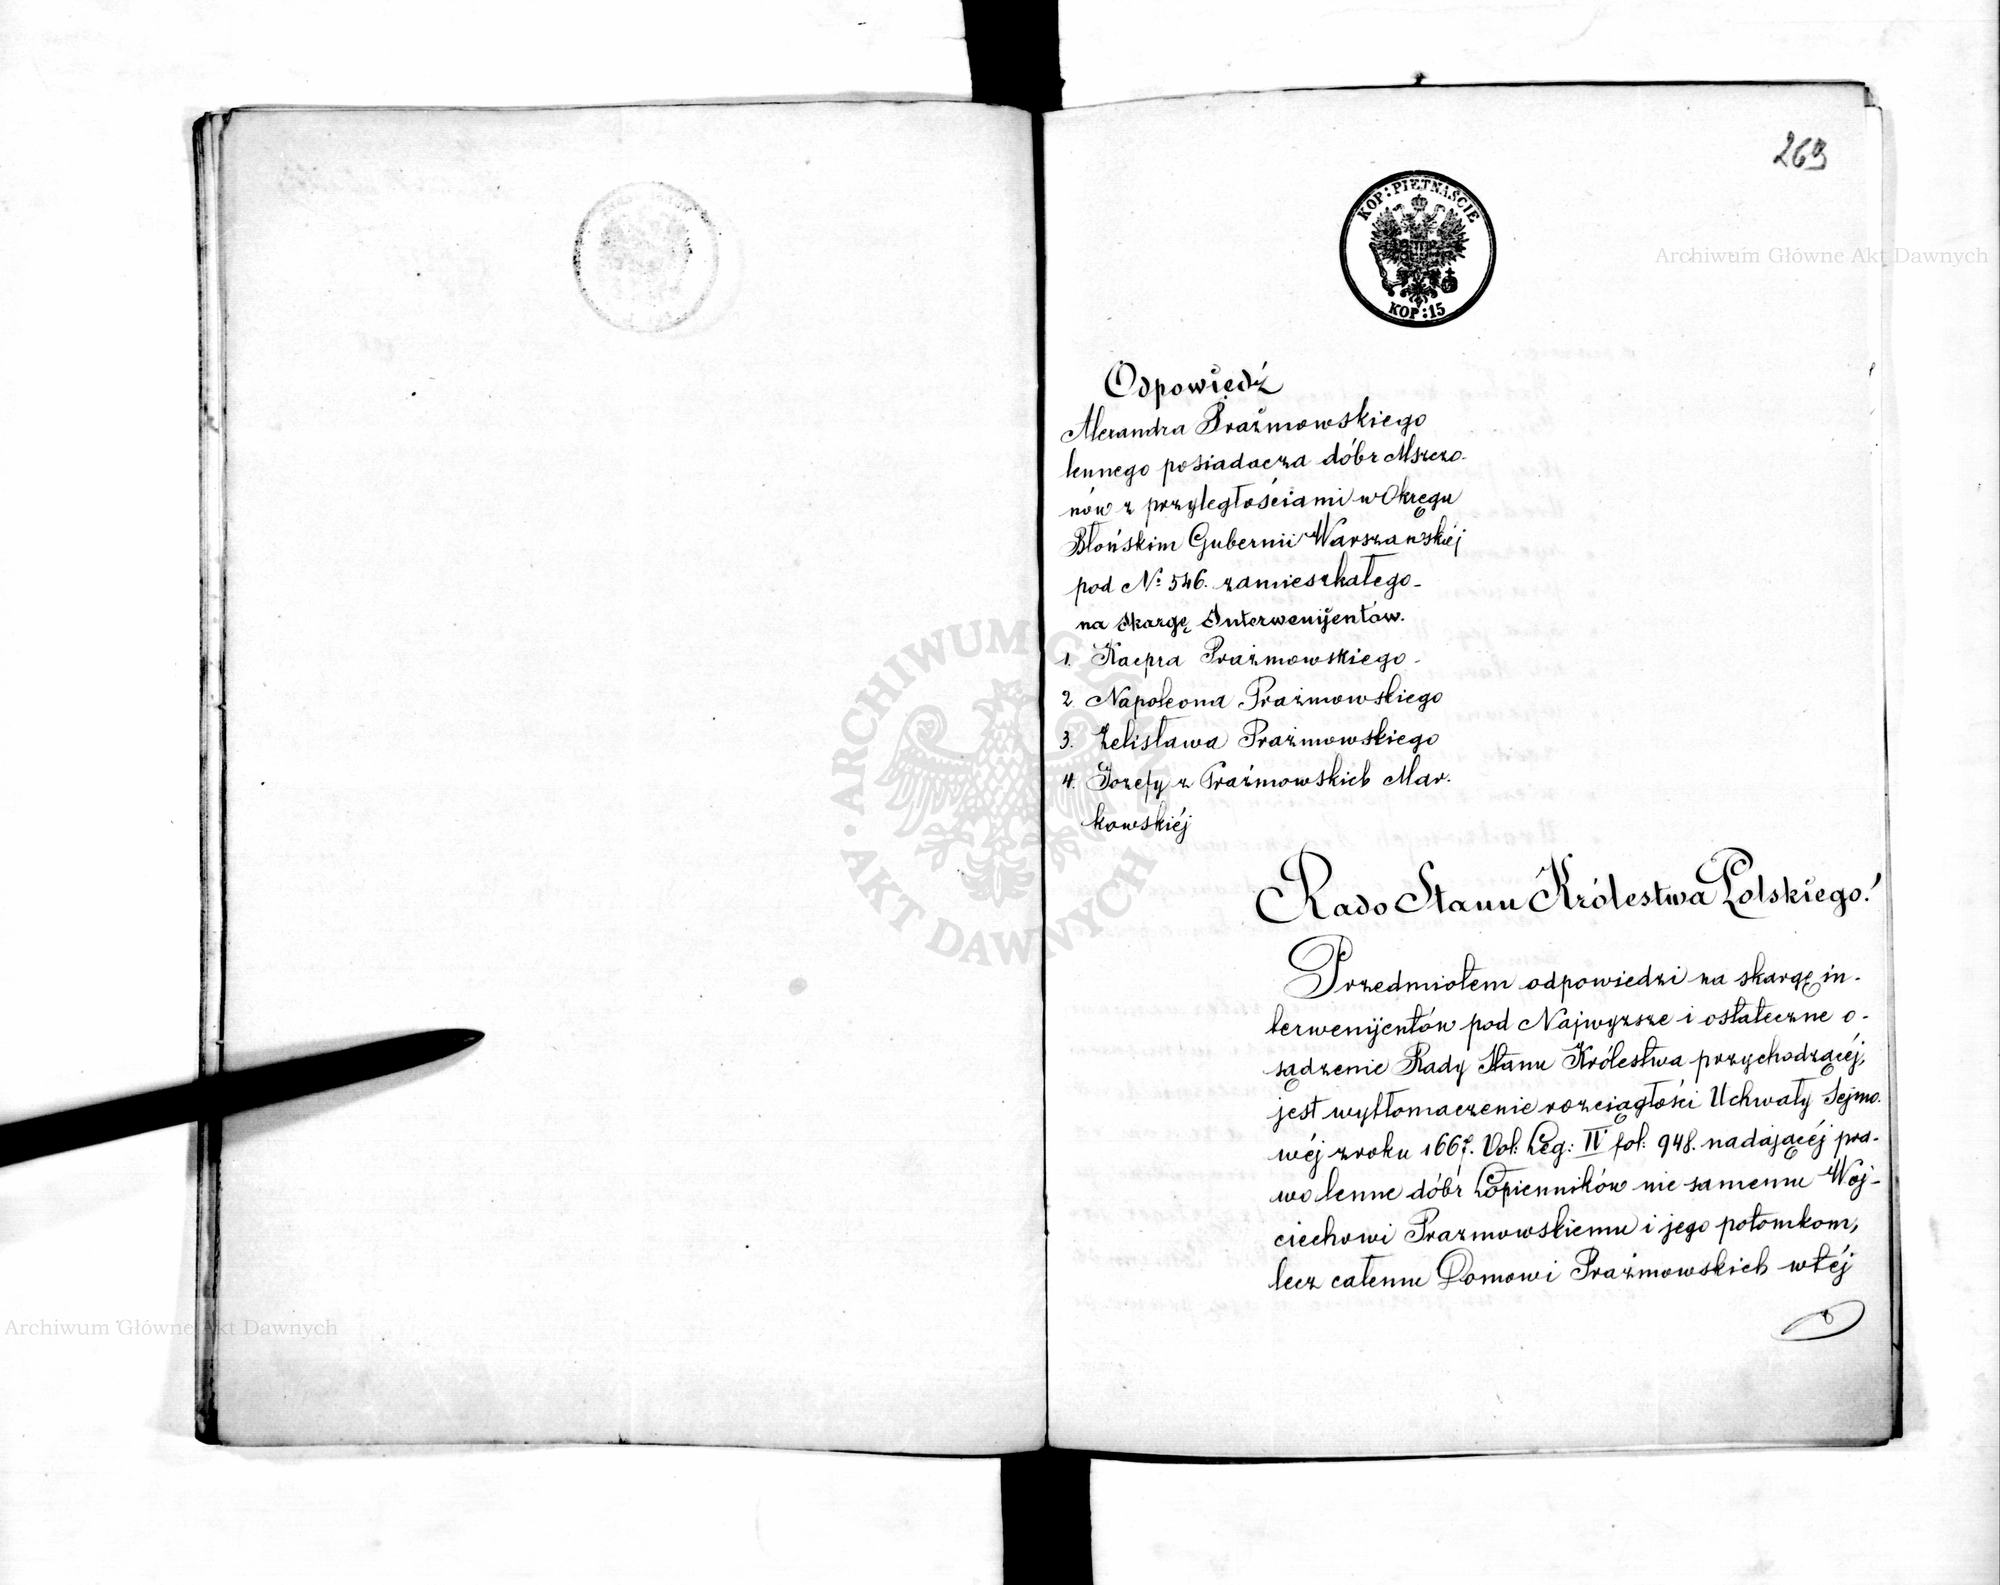 269
KOP: PIĘTNAŚCIE
KOP: 15
Archiwum Główne Akt Dawnych
Odpowiedź
Alexandra Prażmowskiego
lennego posiadacza dóbr Mszczo-
nów z przyległościami w Okręgu
Błońskim Gubernii Warszawskiéj
pod No 546. zamieszkałego
na skargę Interwenijentów.
1. Kacpra Prażmowskiego
2. Napoleona Prażmowskiego
3. Żelisława Prażmowskiego
4. Józefy z Prażmowskich Mar-
kowskiéj
Rado Stanu Królestwa Polskiego!
Przedmiotem odpowiedzi na skargę in-
terwenijentów pod Najwyższe i ostateczne o-
sądzenie Rady Stanu Królestwa przychodzącéj,
jest wytłomaczenie rozciągłości Uchwały Sejmo-
wéj z roku 1667. Vol: Leg: IV fol: 948. nadającéj pra-
wo lenne dóbr Łopienników nie samemu Woj-
ciechowi Prażmowskiemu i jego potomkom,
lecz całemu Domowi Prażmowskich w téj
ARCHIWUM GŁÓWNE AKT DAWNYCH
Archiwum Główne Akt Dawnych